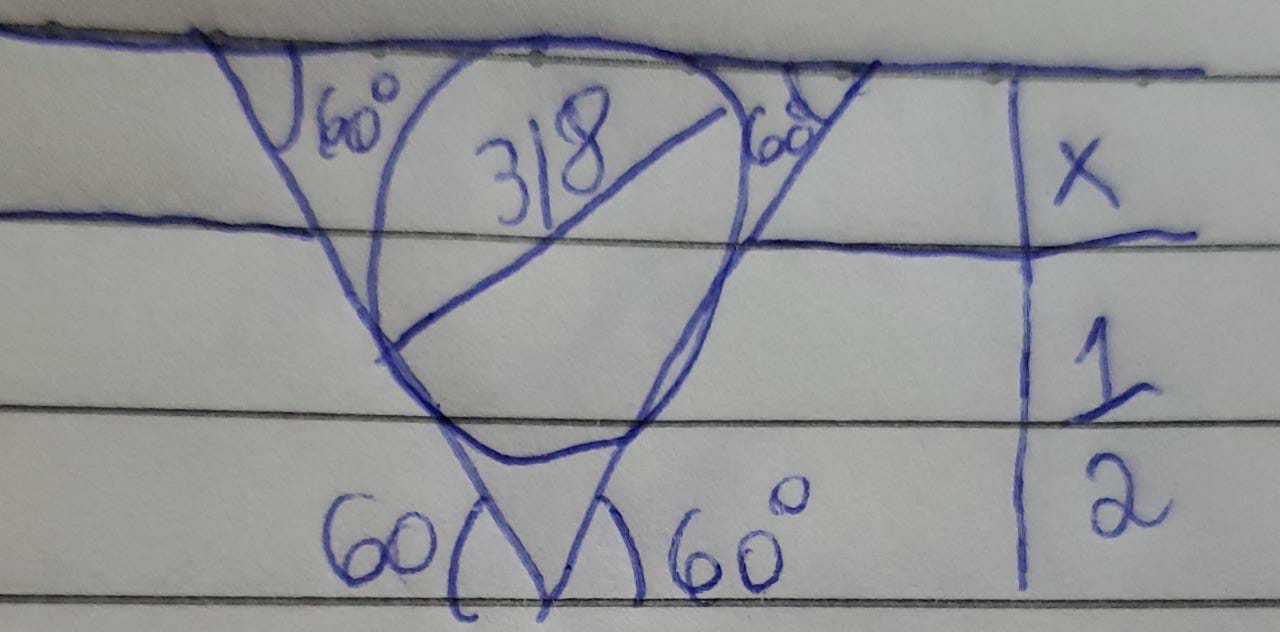 60° 318 60° x
1
2
60 60°